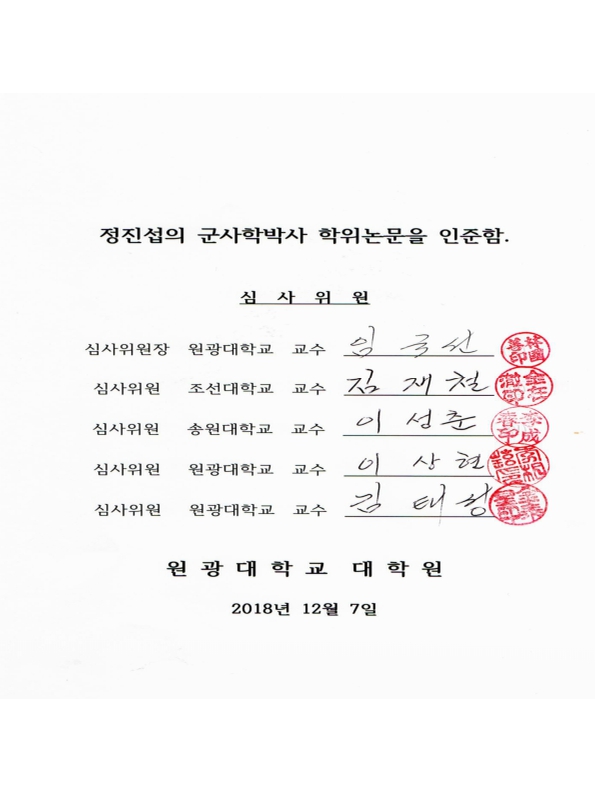 정진섭의 군사학박사 학위논문을 인준함.
심 사 위 원
심사위원장 원광대학교 교수 임국선
심사위원 조선대학교 교수 김재철
심사위원 송원대학교 교수 이성춘
심사위원 원광대학교 교수 이상현
심사위원 원광대학교 교수 김태
원 광 대 학 교 대 학 원
2018년 12월 7일